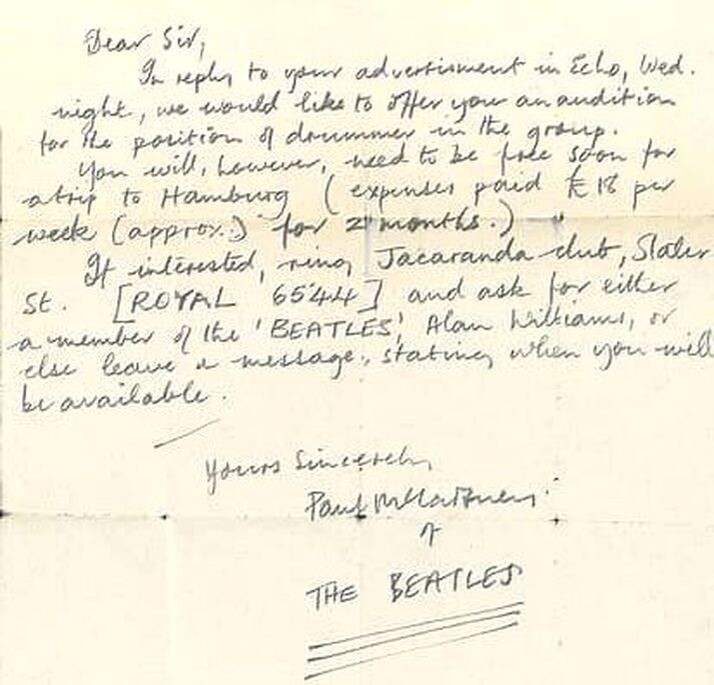 Dear Sir,
In reply to your advertisment in Echo, Wed.
night, we would like to offer you an audition
for the position of drummer in the group.
You will, however, need to be free soon for
a trip to Hamburg (expenses paid £18 per
week (approx.) for 2 months.)
If interested, ring Jacaranda club, Slater
St. [ROYAL 6544] and ask for either
a member of the 'BEATLES', Alan Williams, or
else leave a message, stating when you will
be available.
Yours Sincerely,
Paul McCartney
of
THE BEATLES